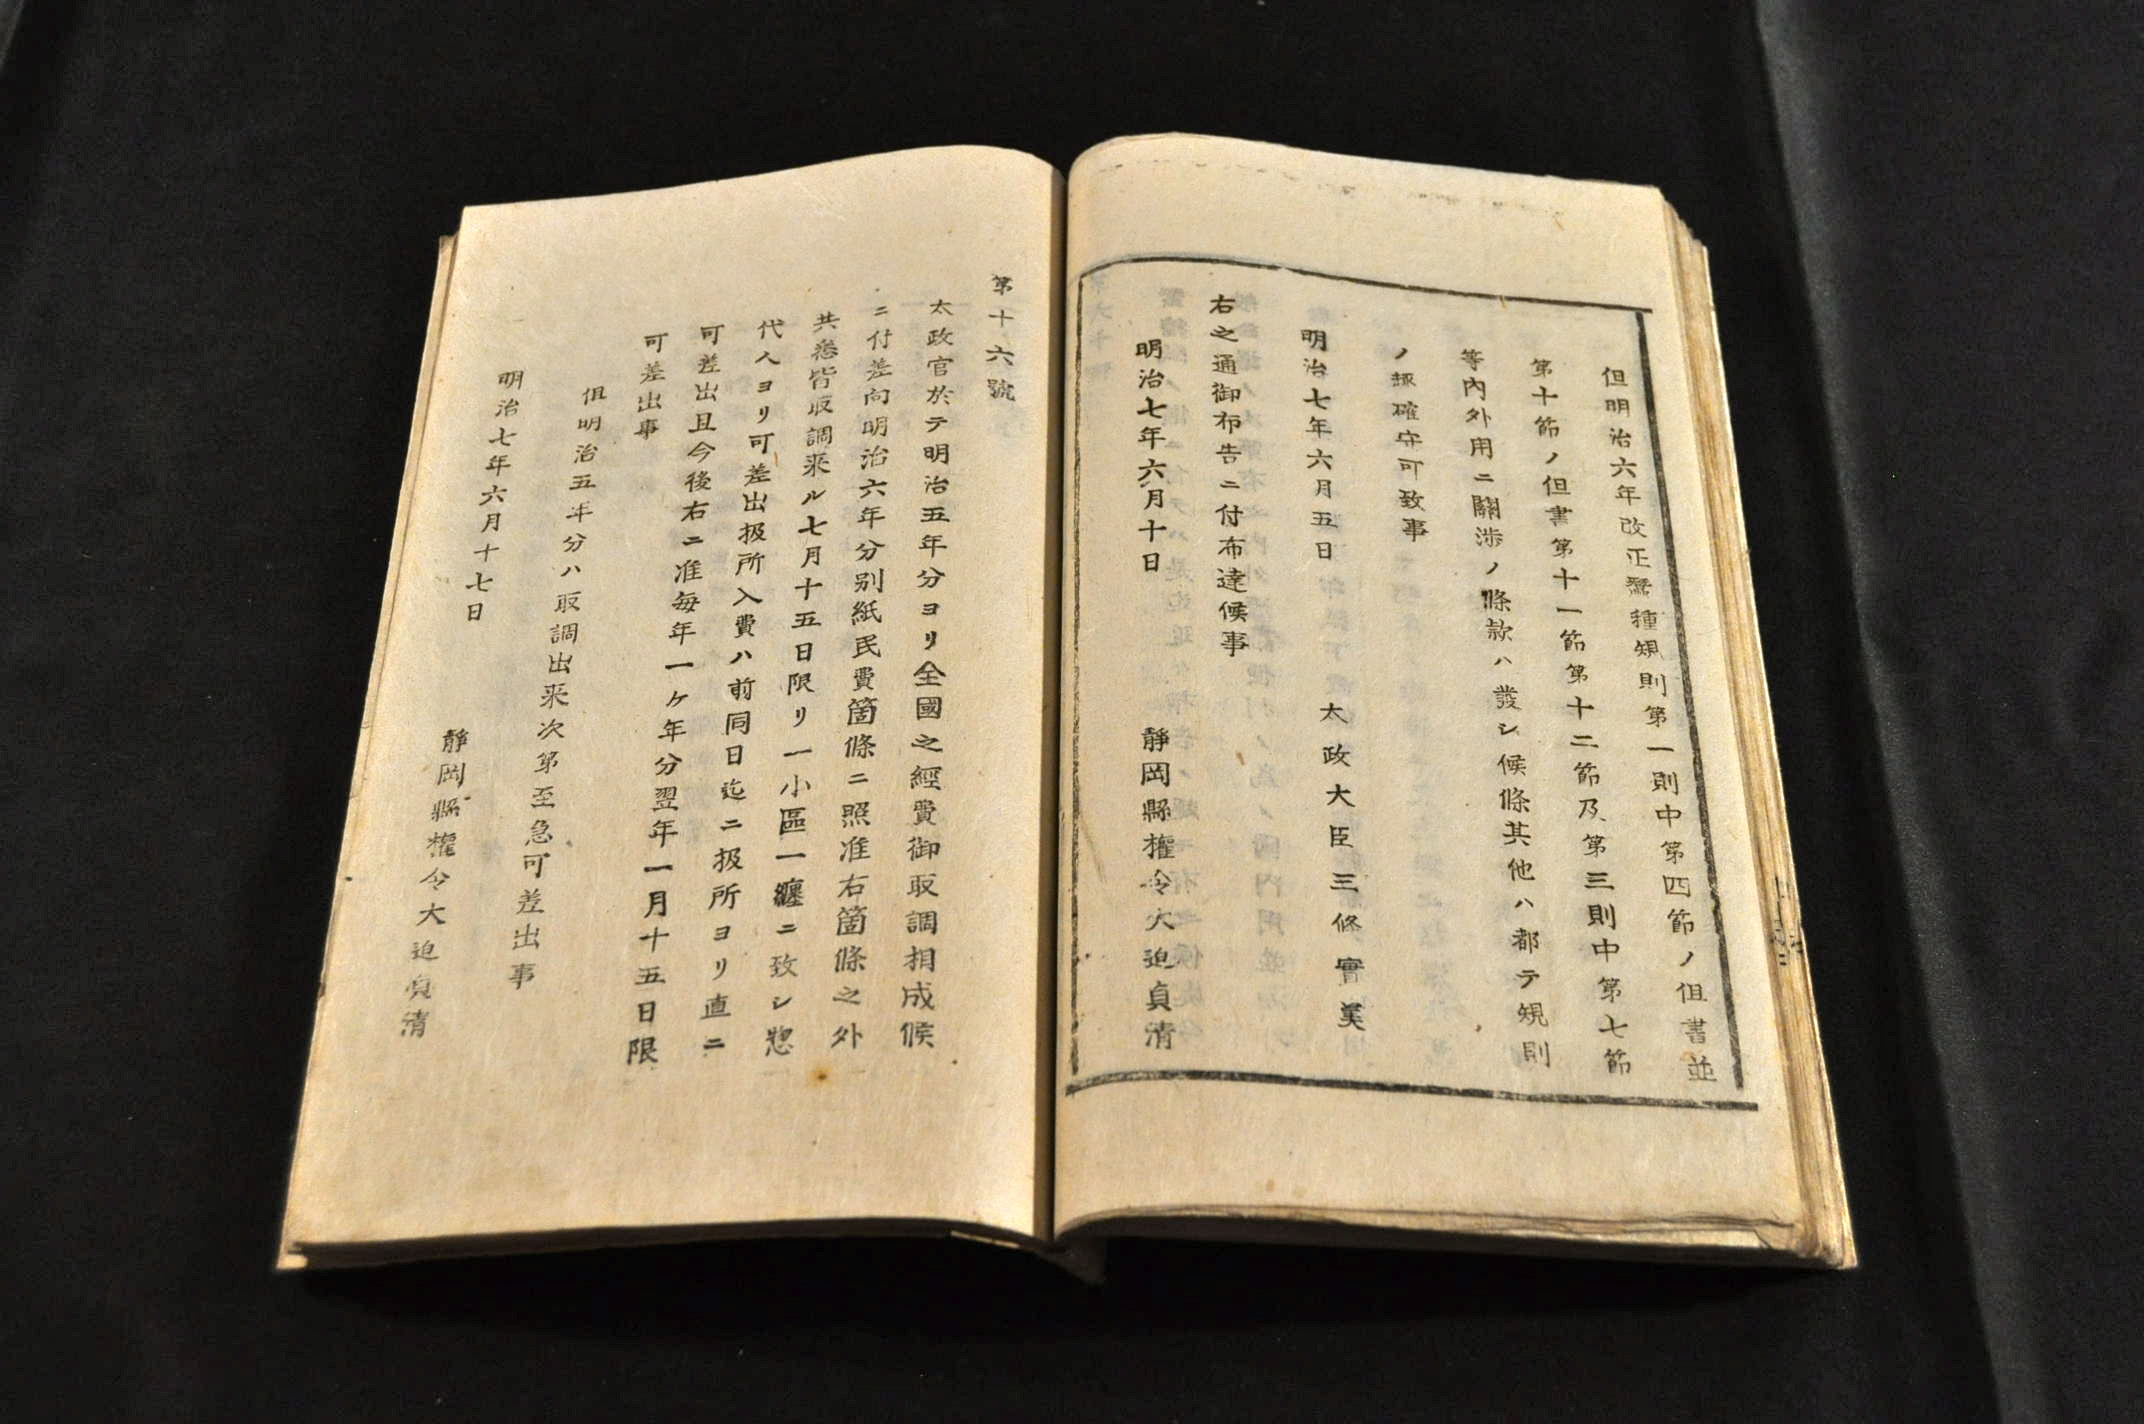 但明治六年改正蠶種規則第一則中第四節ノ但書並
第十節ノ但書第十一節第十二節及第三則中第七節
等內外用ニ關涉ノ條款ハ發シ候條其他ハ都テ規則
ノ趣確守可致事
明治七年六月五日
太政大臣三條實美
右之通御布告ニ付布達候事
明治七年六月十日
靜岡縣權令大迫貞清
第十六號
太政官於テ明治五年分ヨリ全國之經費御取調相成候
ニ付差向明治六年分別紙民費箇條ニ照准右箇條之外
共悉皆取調来ル七月十五日限リ一小區一纏ニ致シ惣
代人ヨリ可差出扱所入費ハ前同日迄ニ扱所ヨリ直ニ
可差出且今後右ニ准每年一ケ年分翌年一月十五日限
可差出事
但明治五年分ハ取調出来次第至急可差出事
明治七年六月十七日
靜岡縣權令大迫貞清